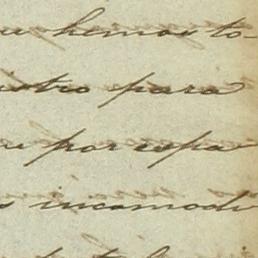 hemos to-
para
por espa
incomodi